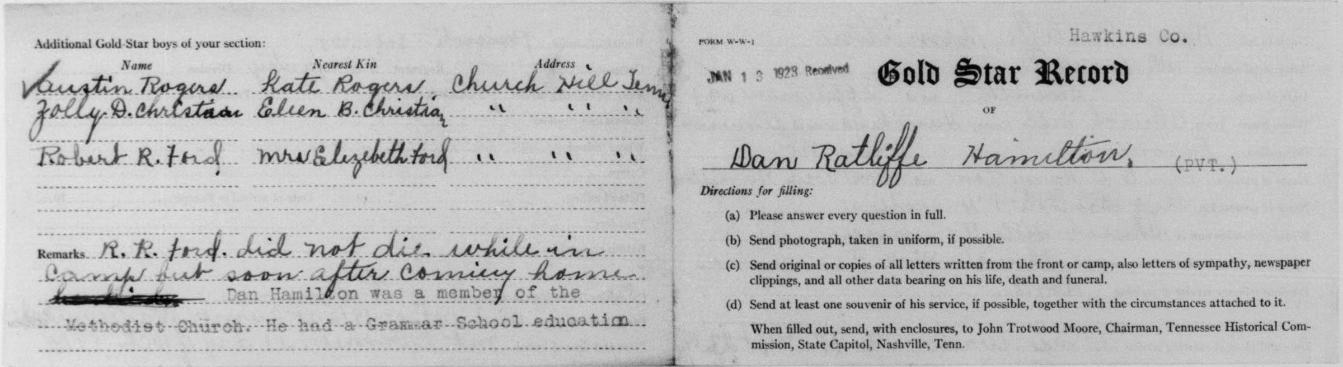 Additional Gold Star boys of your section:
Name Nearest Kin Address
Austin Rogers Kate Rogers Church Hill Tenn
Zolly D. Christian Eleen B. Christian " " "
Robert R. Ford Mrs Elezebeth Ford " " "
Remarks R. R. Ford did not die while in
camp but soon after coming home
Dan Hamilton was a member of the
Methodist Church. He had a Grammar School education
Hawkins Co.
FORM W-W-1
JAN 13 1923 Received
Gold Star Record
OF
Dan Ratliffe Hamilton, (PVT.)
Directions for filling:
(a) Please answer every question in full.
(b) Send photograph, taken in uniform, if possible.
(c) Send original or copies of all letters written from the front or camp, also letters of sympathy, newspaper
clippings, and all other data bearing on his life, death and funeral.
(d) Send at least one souvenir of his service, if possible, together with the circumstances attached to it.
When filled out, send, with enclosures, to John Trotwood Moore, Chairman, Tennessee Historical Com-
mission, State Capitol, Nashville, Tenn.